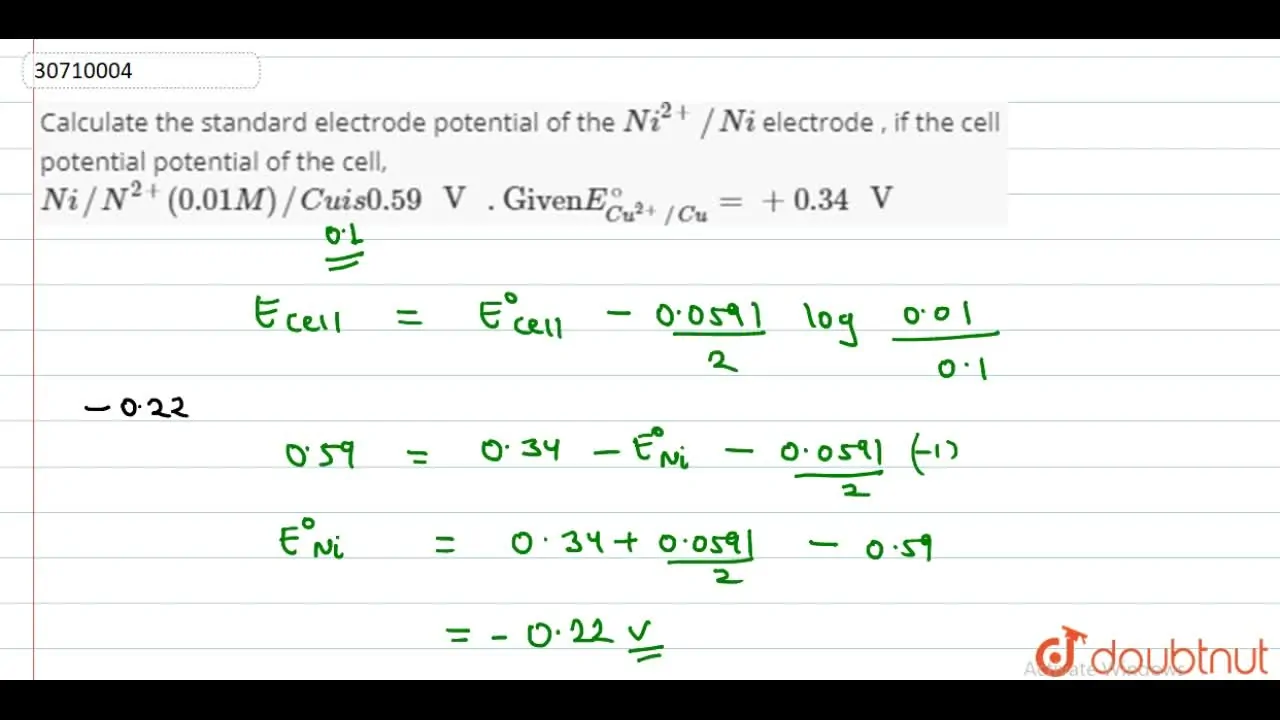 30710004
Calculate the standard electrode potential of the Ni²⁺/Ni electrode , if the cell
potential potential of the cell,
Ni/N²⁺(0.01M)/Cuis0.59 V . GivenE°Cu²⁺/Cu = +0.34 V
0.1
Ecell = E°cell - 0.0591/2 log 0.01/0.1
- 0.22
0.59 = 0.34 - E°Ni - 0.0591/2 (-1)
E°Ni = 0.34 + 0.0591/2 - 0.59
= - 0.22 V
doubtnut
Activate Windows